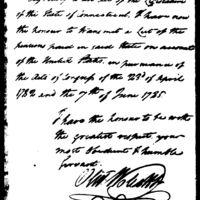 of the State of Connecticut, I have now
the honour to transmit a List of the
persons paid in said State on account
of the United States, in pursuance of
the Acts of Congress of the 23d of April
1782 and the 7th of June 1785
I have the honour to be with
the greatest respect your
most Obedient & humble
Servant